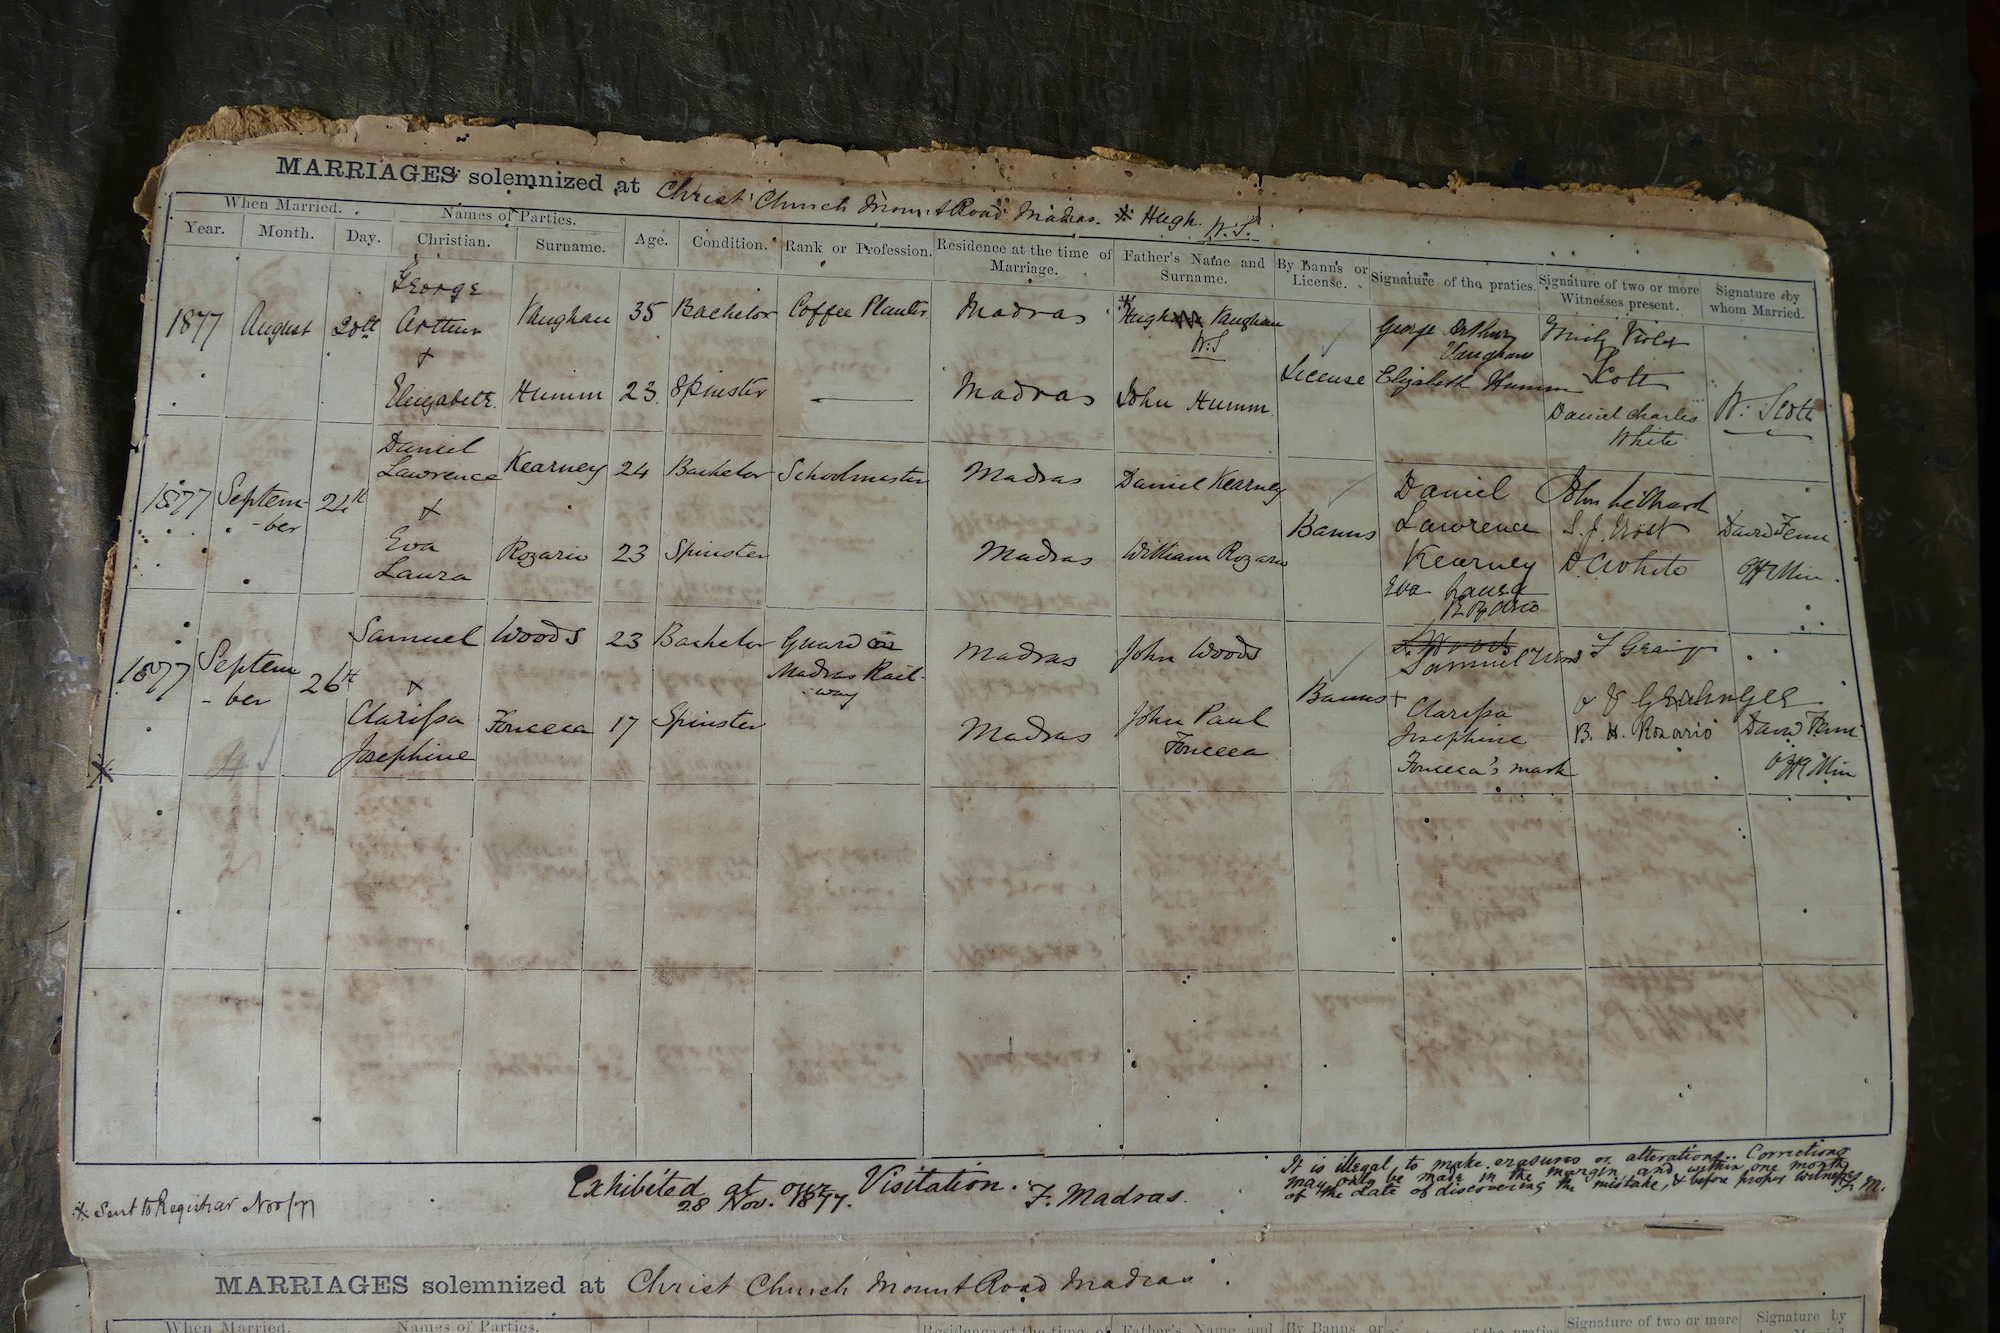 MARRIAGES solemnized at Christ Church Mount Road Madras. * Hugh. W.S.
When Married. Names of Parties.
Year. Month. Day. Christian. Surname. Age. Condition. Rank or Profession. Residence at the time of Marriage. Father's Name and Surname. By Banns or License. Signature of the praties. Signature of two or more Witnesses present. Signature by whom Married.
1877 August 20th George Arthur Vaughan 35 Bachelor Coffee Planter Madras * Hugh Vaughan W.S
George Arthur Vaughan Emily Violet Scott
&
Elizabeth. Humm 23. Spinster Madras John Humm. License Elizabeth Humm Daniel Charles White W. Scott
1877 Septem-ber 24th Daniel Lawrence Kearney 24 Bachelor Schoolmaster Madras Daniel Kearney
Daniel Lawrence Kearney John D. C. White David Fenn
&
Eva Laura Rozario 23 Spinster Madras William Rozario Banns Eva Laura Rozario Offg Min.
1877 Septem-ber 26th Samuel Woods 23 Bachelor Guard Madras Railway Madras John Woods
Samuel Woods F Grainger
&
Clarissa Josephine Fonceca 17 Spinster Madras John Paul Fonceca Banns + Clarissa Josephine Fonceca's mark B. H. Rozario David Fenn Offg Min
* Sent to Registrar
Exhibited at our Visitation.
28 Nov. 1877. F. Madras.
It is illegal to make erasures or alterations. Corrections
may only be made in the margin and within one month
of the date of discovering the mistake, & before proper witnesses F. M.
MARRIAGES solemnized at Christ Church Mount Road Madras.
When Married. Names of Parties. Residence at the time of Father's Name and By Banns or Signature of two or more Signature by